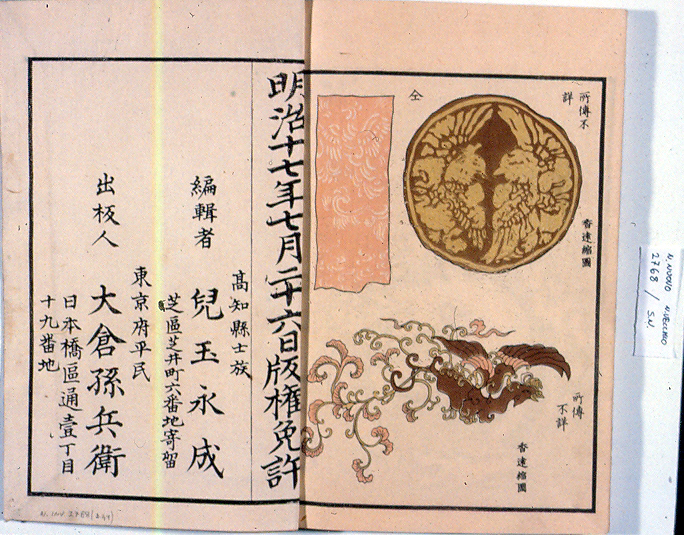 所傳不
詳
仝
香逺縮圖
所傳
不詳
香逺縮圖
明治十七年七月二十六日版權免許
高知縣士族
編輯者 兒玉永成
芝區芝井町六番地寄留
東京府平民
出板人 大倉孫兵衛
日本橋區通壹丁目
十九番地
N. NUOVO N. VECCHIO
2768 / S.N.
N. INV. 2768